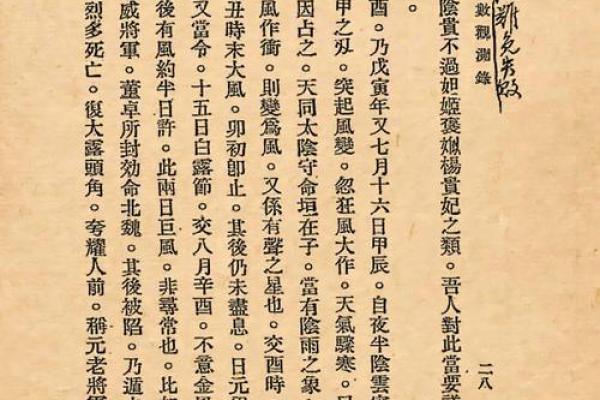 難免失敗
數觀測錄
二八
陰貴不過妲姬褒姒楊貴妃之類。吾人對此當要
。
酉。乃戊寅年又七月十六日甲辰。自夜半陰雲
甲之刃。突起風變。忽狂風大作。天氣驟寒。
因占之。天同太陰守命垣在子。當有陰雨之象
風作衝。則變爲風。又係有聲之星也。交酉時
丑時末大風。卯初卽止。其後仍未盡息。日元
又當令。十五日白露節。交八月辛酉。不意金
後有風約半日許。此兩日巨風。非尋常也。比
威將軍。董卓所封効命北魏。其後被陷。乃遁
烈多死亡。復大露頭角。夸耀人前。稱元老將軍